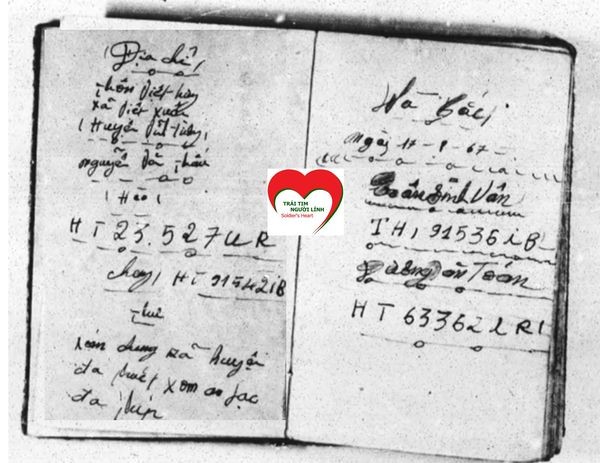 (Địa chỉ)
thôn Việt hùng
xã Việt xuân
(Huyện Vĩnh tường)
nguyễn Văn
(Hảo)
HT 23.527UR
HT 91542iB
xóm chung xã huyện
đa xóm
đa phúc
TRÁI TIM
NGƯỜI LÍNH
Soldier's Heart
Hà Bắc
ngày 17-8-67
Trần Đình Vân
TH, 91536iB
Dương Văn Toán
HT 63362LR1